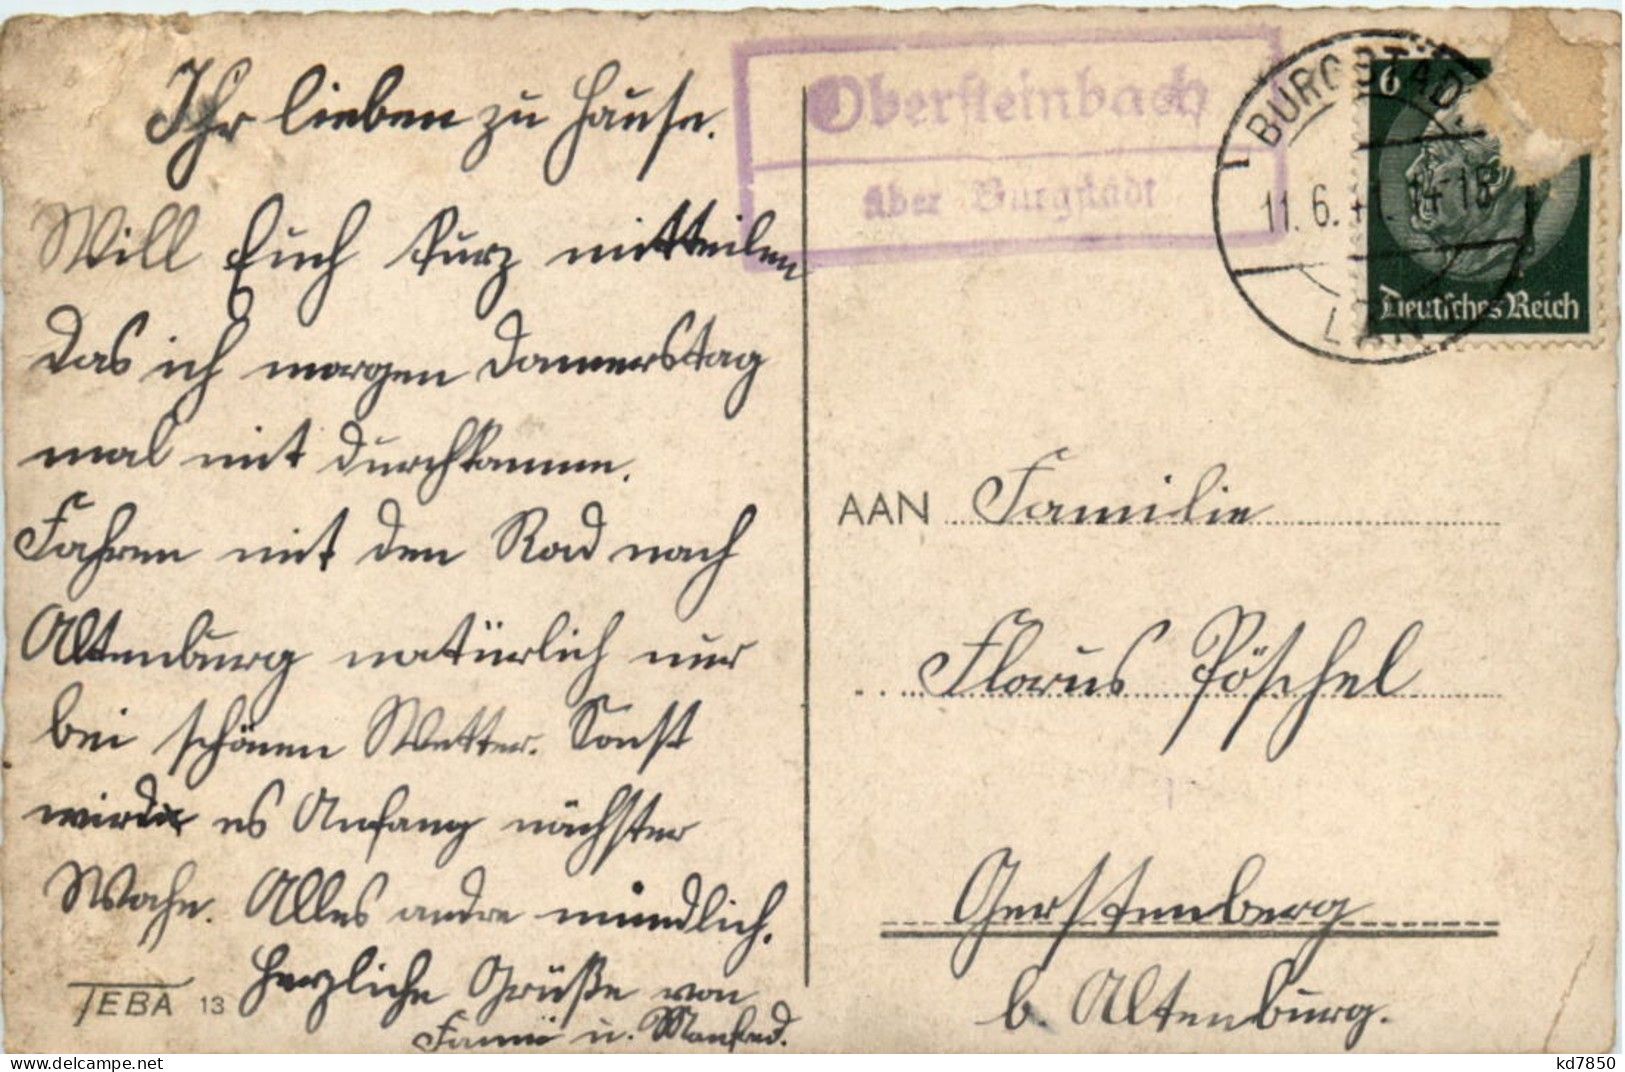 Ihr lieben zu Hause.
Will Euch kurz mitteilen
das ich morgen Donnerstag
mal mit durchkomme.
Fahren mit den Rad nach
Altenburg natürlich nur
bei schönen Wetter. Sonst
wird es Anfang nächster
Woche. Alles andre mündlich.
Herzliche Grüße von
Fanni u. Manfred.
TEBA 13
Obersteinbach
über Burgstädt
BURGSTÄD
11.6. 14-15
LAN
6
Deutsches Reich
AAN Familie
Florus Pöschel
Gerstenberg
b. Altenburg.
delcampe.net
kd7850